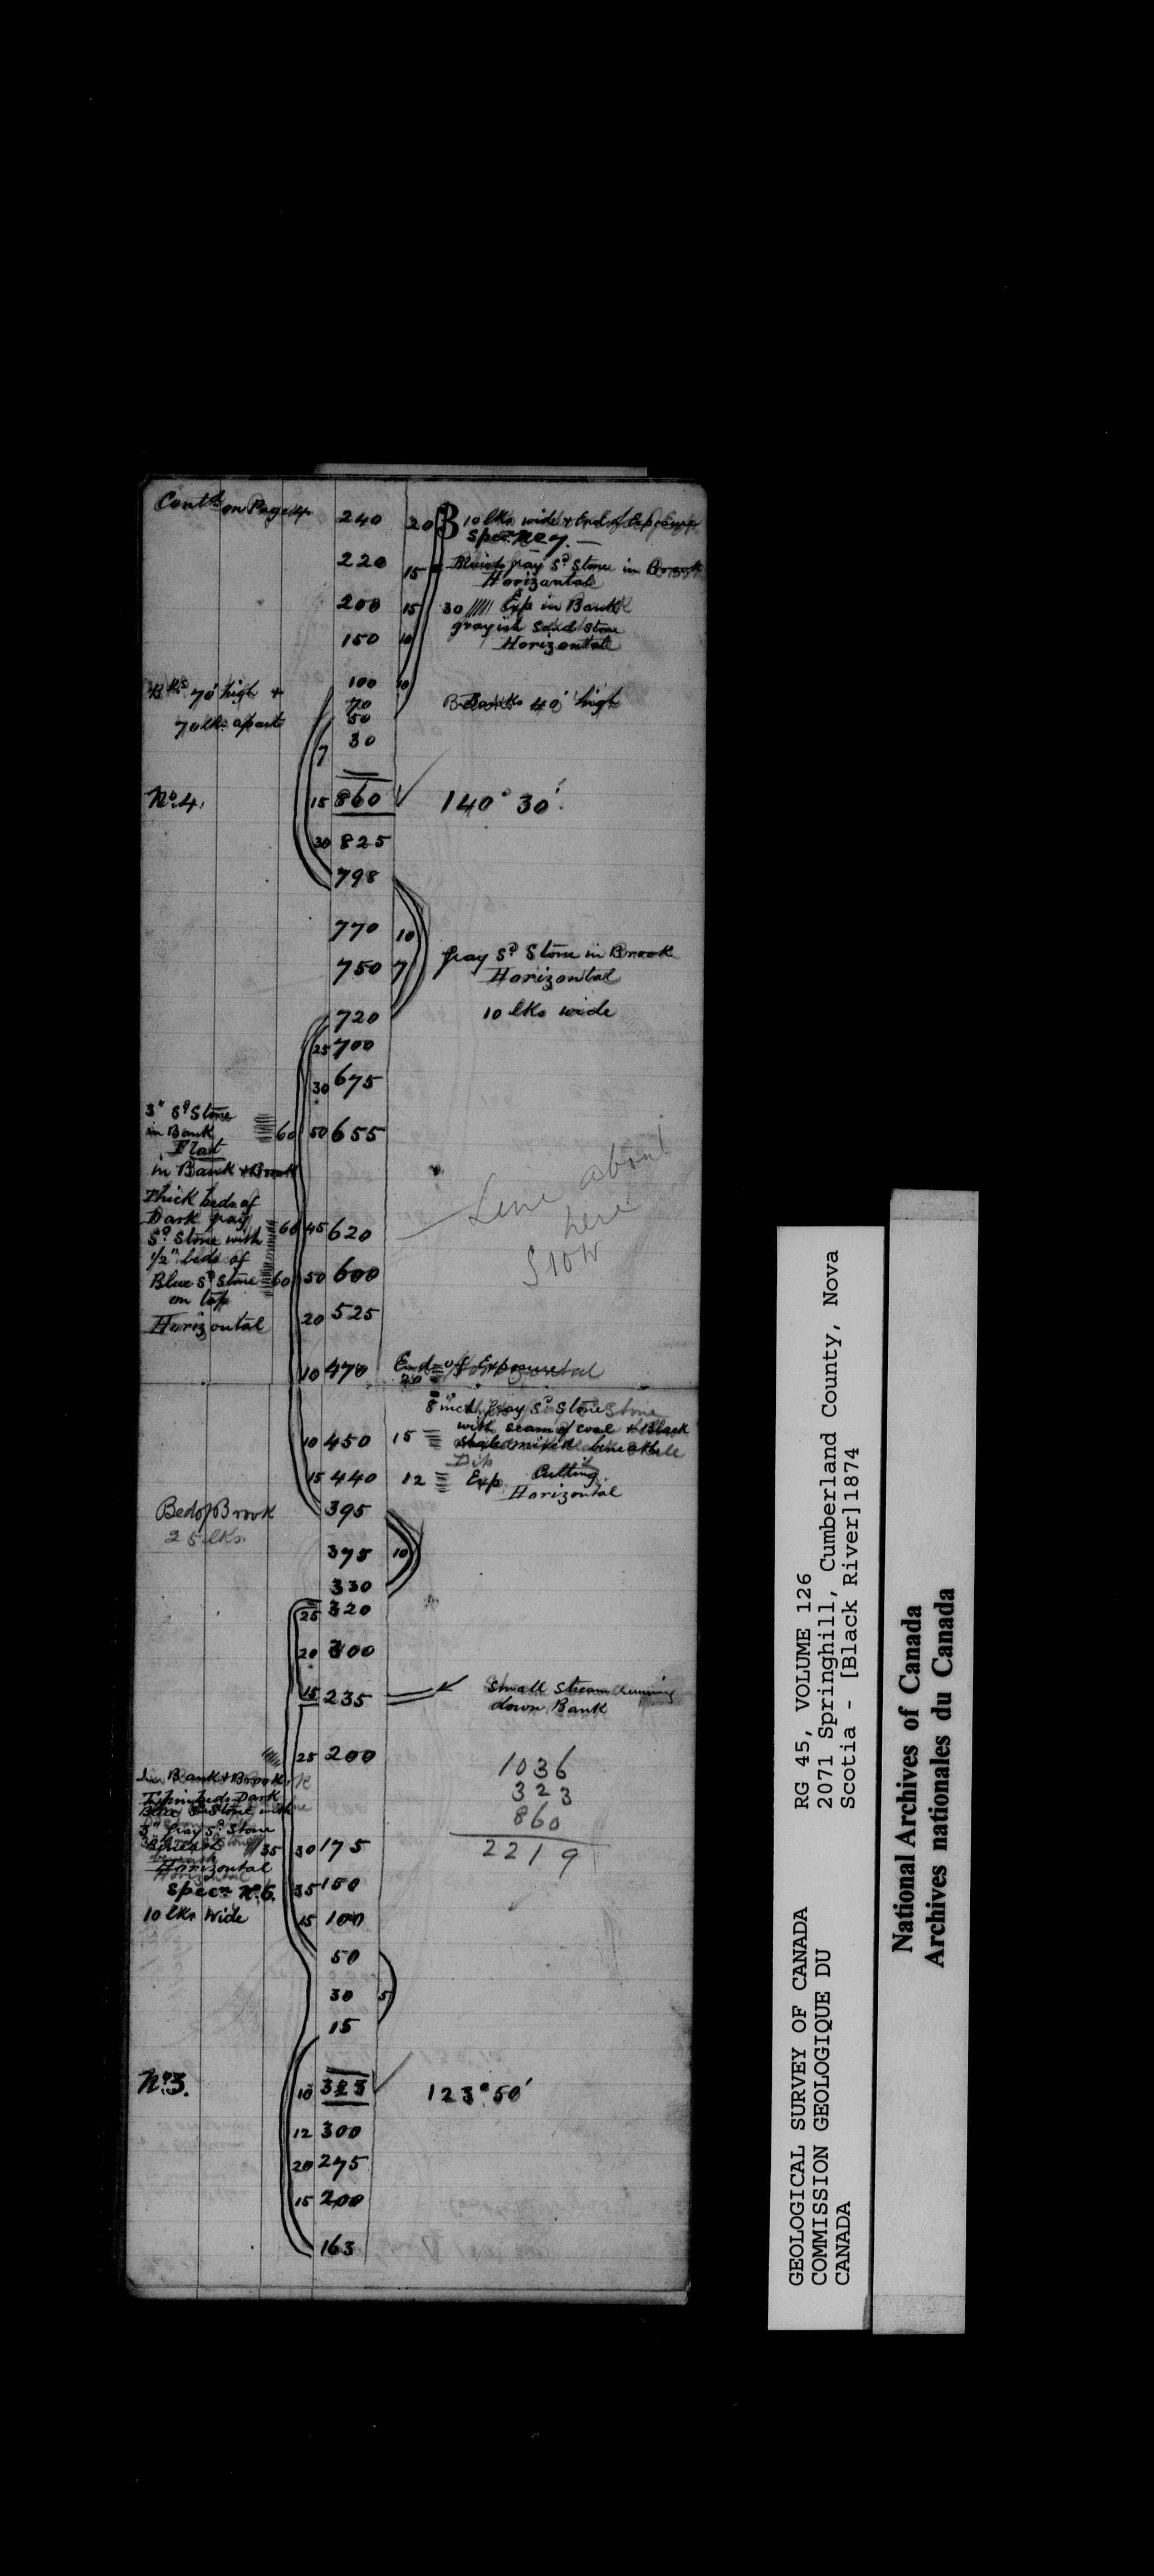 Contd on Page 4
240 20 B 10 lks wide & End of Exposure
Specn No 7.
220 15 Bluish gray Sd Stone in Brook
Horizontal
200 15 30 Exp in Bank
grayish Sand Stone
150 10 Horizontal
100 10
Bks 70' high +
70 Banks 40' high
70 lks apart
50
7 30
No. 4. 15 860 140° 30'
30 825
798
770 10
gray Sd Stone in Brook
750 7 Horizontal
720 10 lks wide
25 700
30 675
3" Sd Stone
in Bank 60 50 655
Flat
in Bank & Brook
Thick beds of
Dark gray 60 45 620
Sd Stone with
1/2" beds of
Blue Sd Stone 60 50 600
on top
Horizontal 20 525
Line about
here
S 10 W
10 470 End of Exposure
20
8 inch gray Sd Stone
with seam of coal & Black
10 450 15 Shale mixed beneath
Dip
15 440 12 Exp Cutting
Horizontal
395
Bed of Brook
25 lks.
375 10
330
25 320
20 300
15 235 Small Stream running
down Bank
25 200
In Bank & Brook
Thin beds Dark
Blue Sd Stone with
3" gray Sd Stone
beneath 35 30 175
Horizontal
Specn No 6. 35 150
10 lks Wide 15 100
1036
323
860
2219
50
30 5
15
No. 3. 10 323 123° 50'
12 300
20 275
15 200
163
GEOLOGICAL SURVEY OF CANADA RG 45, VOLUME 126
COMMISSION GEOLOGIQUE DU 2071 Springhill, Cumberland County, Nova
CANADA Scotia - [Black River]1874
National Archives of Canada
Archives nationales du Canada